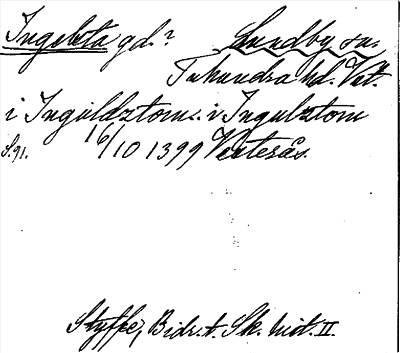 Ingelsta gd.? Lundby sn.
Tuhundra hd. Vstm.
i Inguldztom. i Ingulztom
S. 91. 16/10 1399 Västerås.
Styffe, Bidr. t. Sk. hist. II.